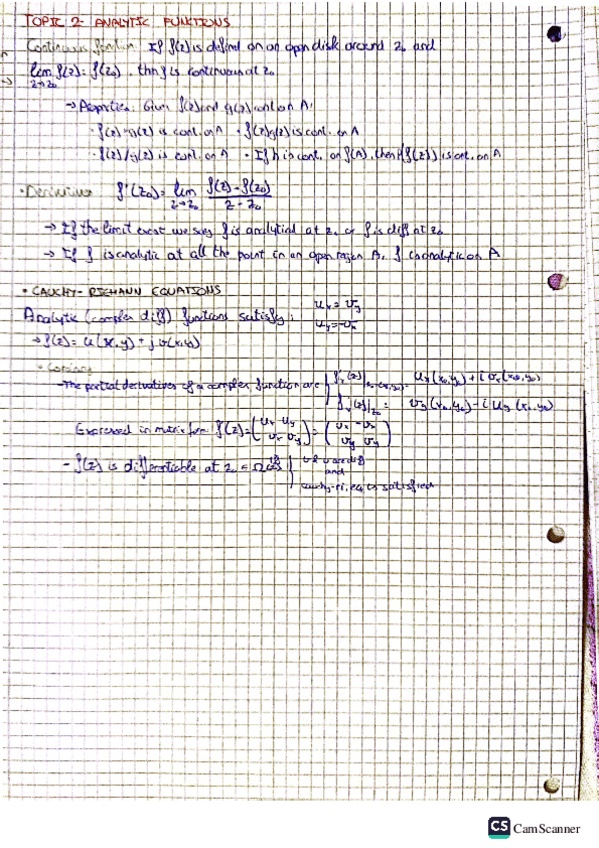 TOPIC 2- ANALYTIC FUNCTIONS
Continuous function If f(z) is defined on an open disk around z₀ and
lim z→z₀ f(z) = f(z₀), then f is continuous at z₀
→ Properties: Given f(z) and g(z) cont. on A:
· f(z)+g(z) is cont. on A · f(z)g(z) is cont. on A
· f(z)/g(z) is cont. on A · If h is cont. on f(A), then h(f(z)) is cont. on A
· Derivatives f'(z₀) = lim z→z₀ (f(z) - f(z₀))/(z - z₀)
→ If the limit exist we say f is analytical at z₀ or f is diff at z₀
→ If f is analytic at all the point in an open region A, f is analytic on A
· CAUCHY-RIEMANN EQUATIONS
Analytic (complex diff) functions satisfy: uₓ = v_y
u_y = -vₓ
→ f(z) = u(x,y) + j v(x,y)
·
- The partial derivatives of a complex function are fₓ(z)| = uₓ(x₀,y₀) + i vₓ(x₀,y₀)
f_y(z)|z₀ = v_y(x₀,y₀) - i u_y(x₀,y₀)
Expressed in matrix form f'(z) = (uₓ u_y vₓ v_y) =
- f(z) is differentiable at z₀ u & v are diff
and
cauchy-ri. eq is satisfied
CS CamScanner